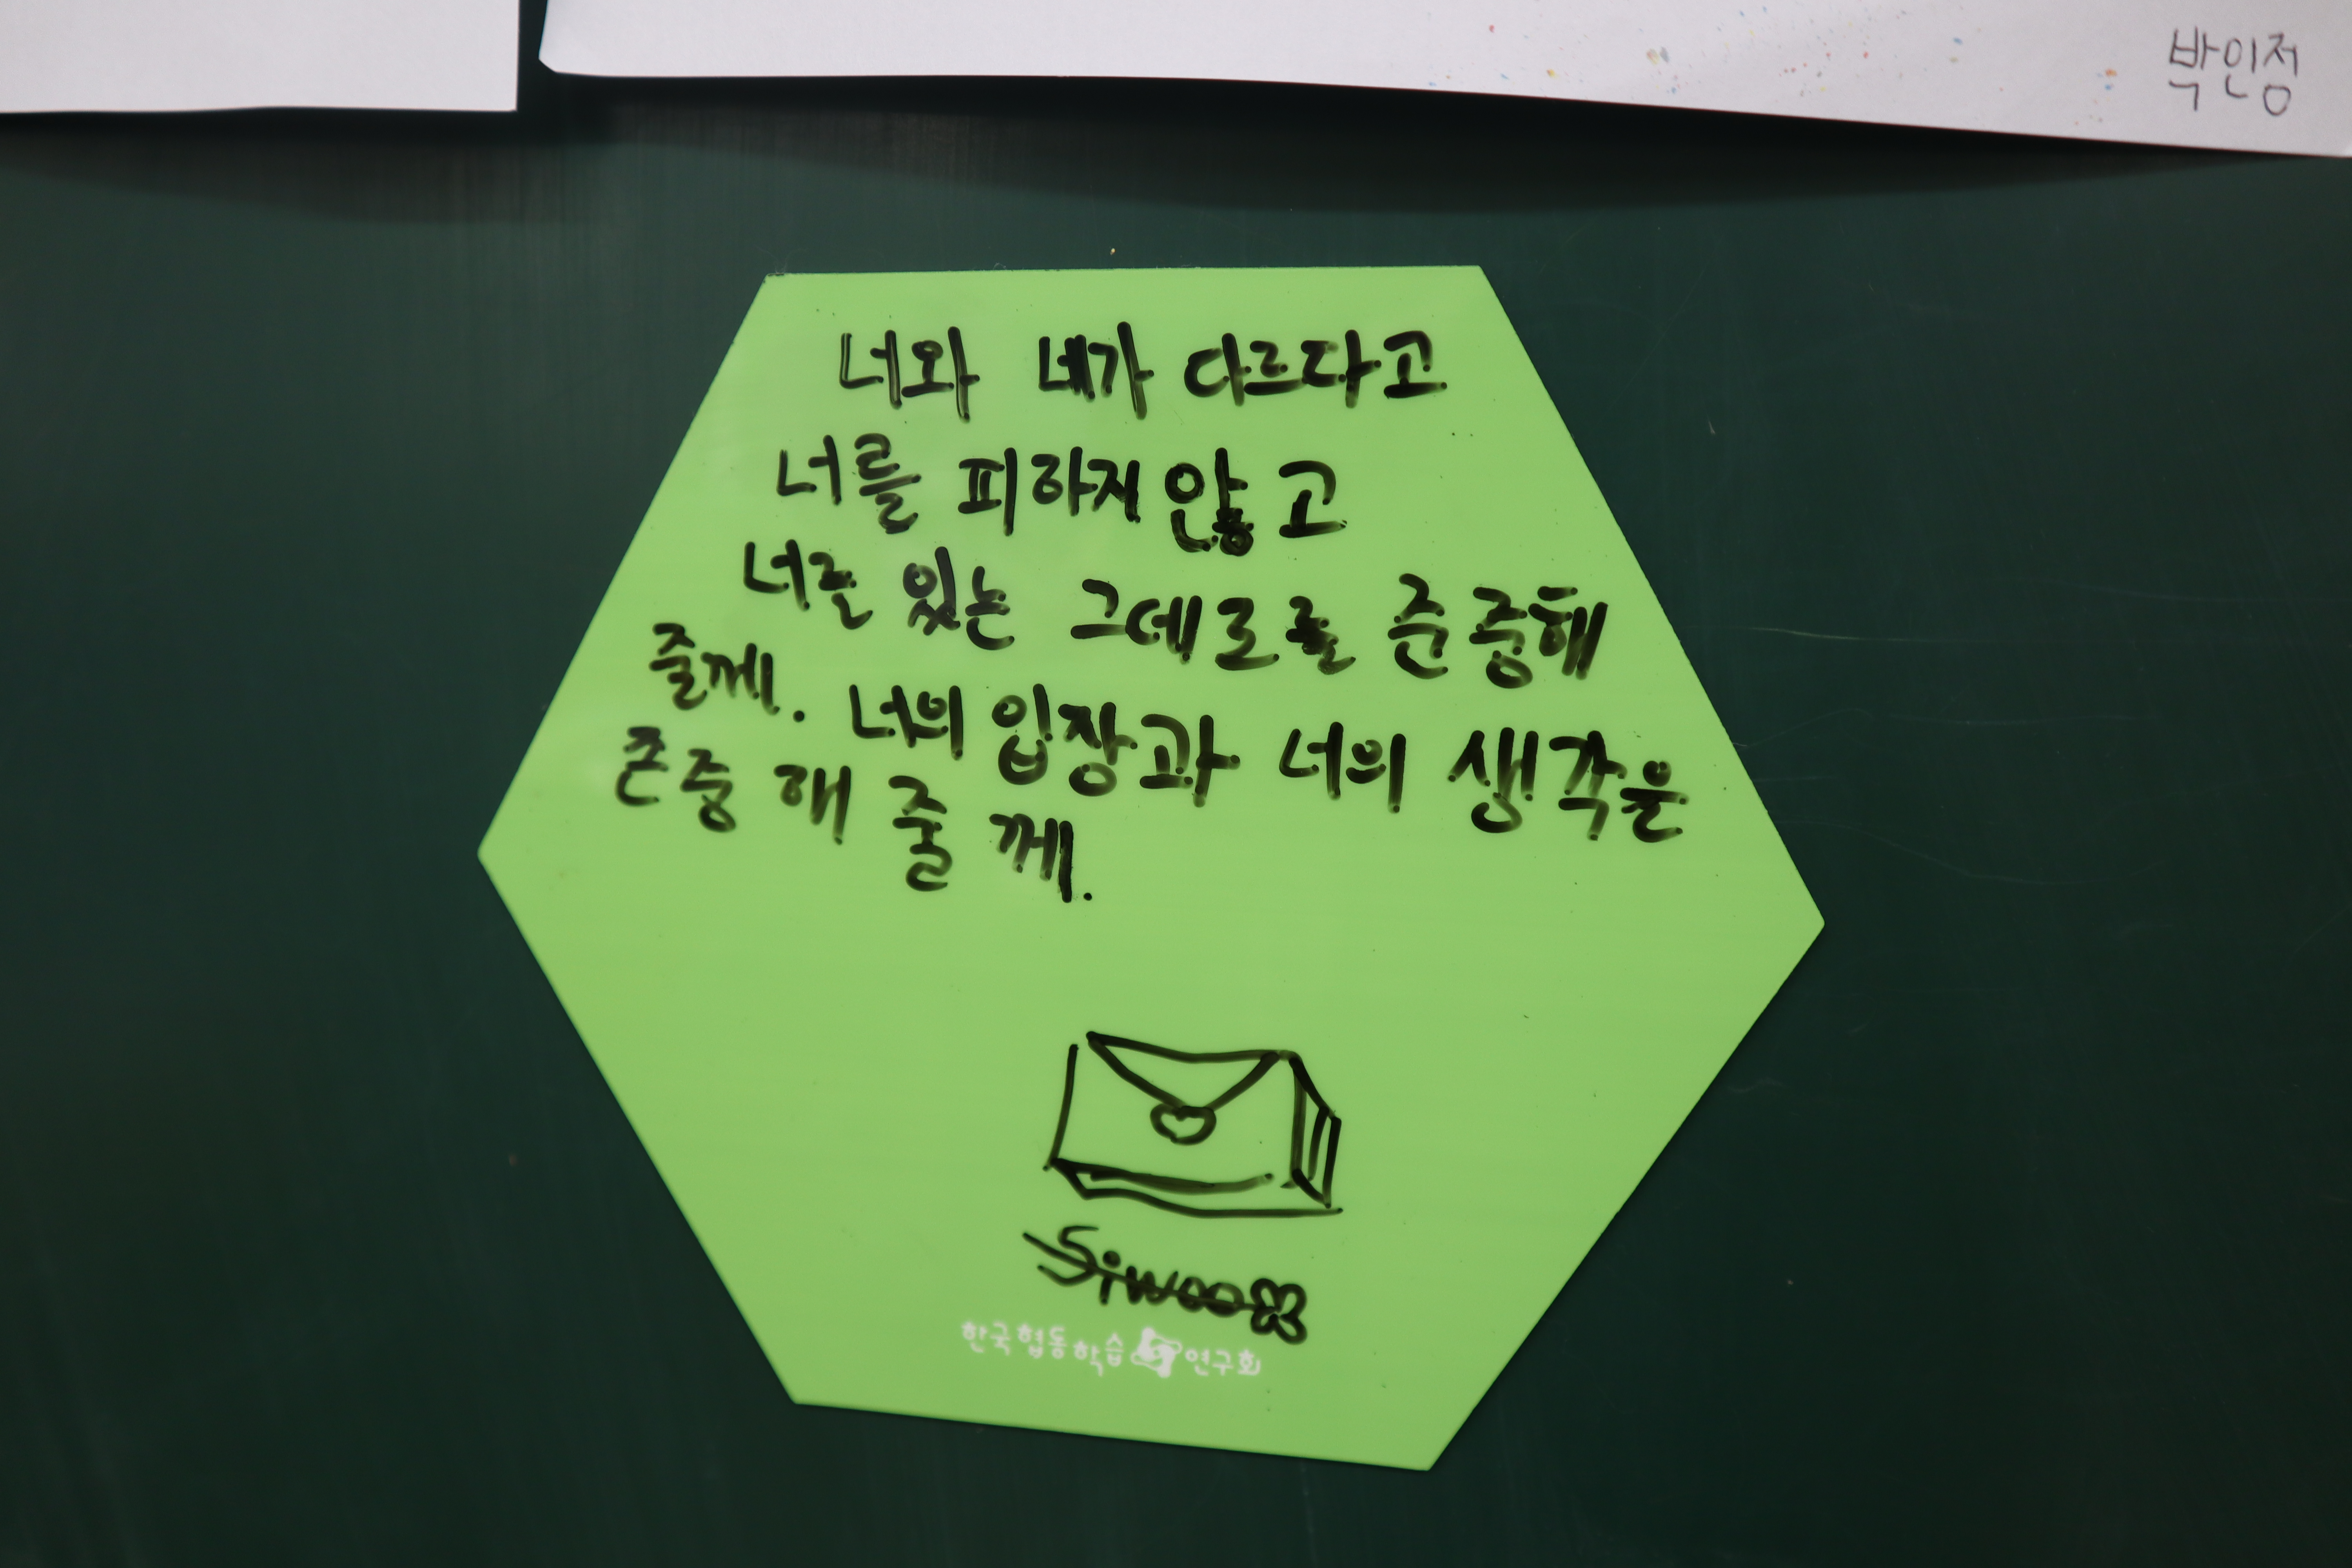 박인정
너와 네가 다르다고
너를 피하지 않고
너를 있는 그데로를 존중해
줄께. 너의 입장과 너의 생각을
존중해 줄께.
Siwoo
한국협동학습연구회